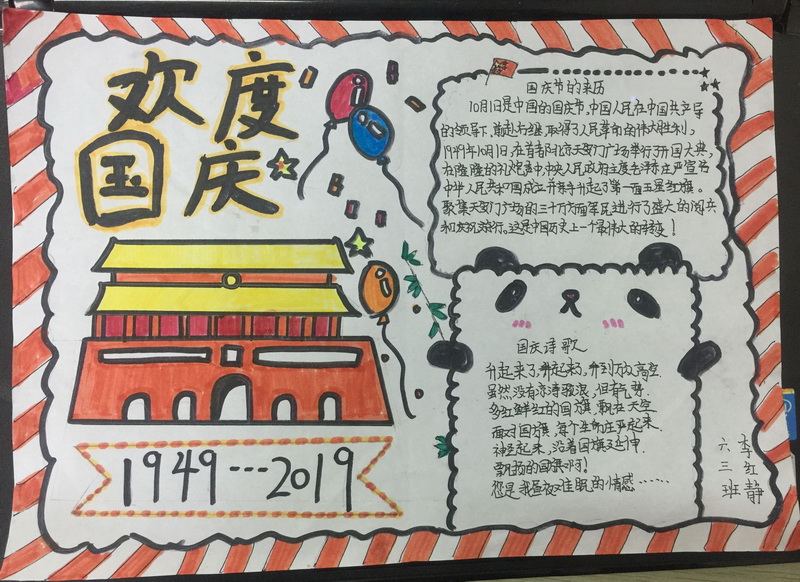 欢度
国庆
1949···2019
国庆节的来历
10月1日是中国的国庆节,中国人民在中国共产导
的领导下,前赴后继,取得了人民革命的伟大胜利,
1949年10月1日,在首都北京天安门广场举行了开国大典,
在隆隆的礼炮声中,中央人民政府主席毛泽东庄严宣告
中华人民共和国成立并亲手升起了第一面五星红旗。
聚集天安门广场的三十万军民进行了盛大的阅兵
和庆祝游行。这是中国历史上一个最伟大的转变!
国庆诗歌
升起来了,升起来了,升到万丈高空
虽然没有惊涛骇浪,但有气势.
多红鲜红的国旗.飘在天空
面对国旗,每个生命庄严起来.
神圣起来,沿着国旗延伸.
飘扬的国旗啊!
您是我昼夜难眠的情感······
六三班
李红静